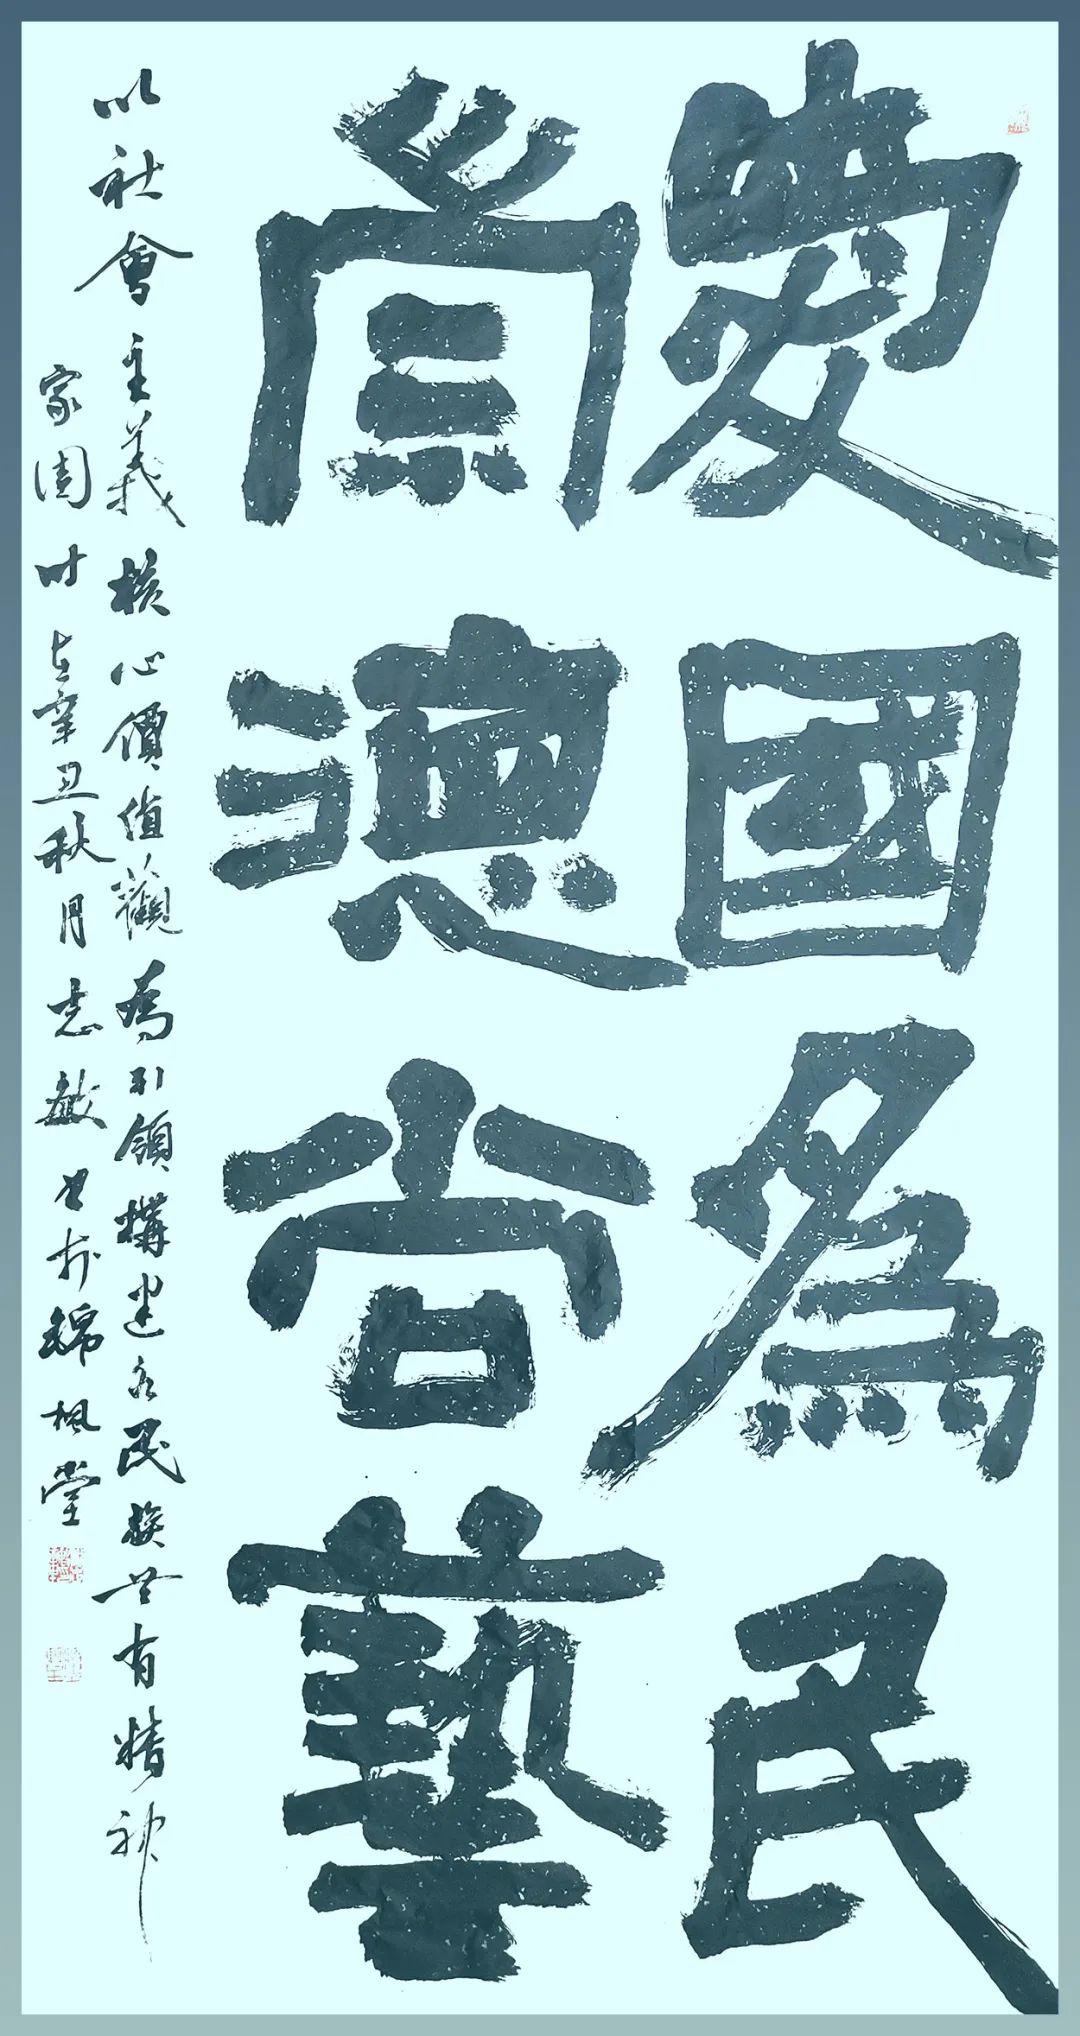 愛國為民
崇德尚藝
以社會主義核心價值觀為引領構建各民族共有精神
家園 时在辛丑秋月志敏書於錦楓堂